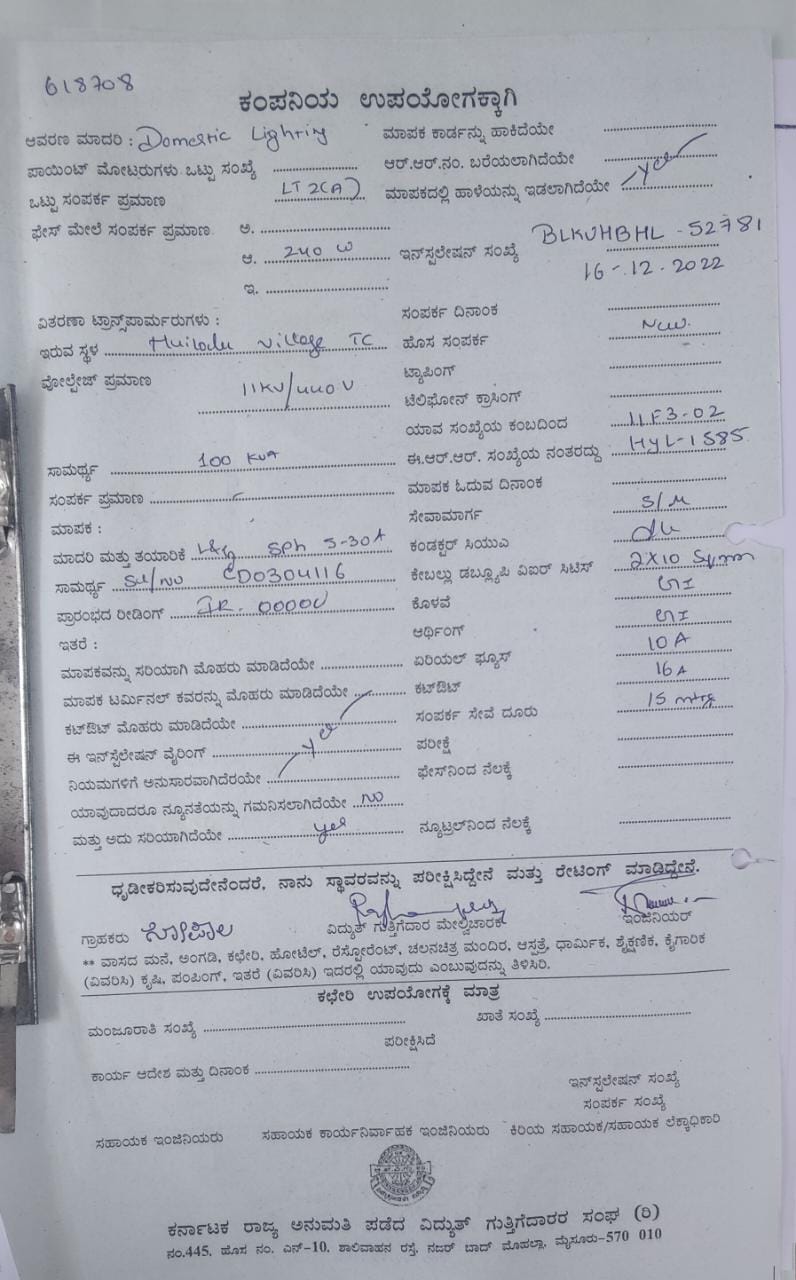 618708
ಕಂಪನಿಯ ಉಪಯೋಗಕ್ಕಾಗಿ
ಆವರಣ ಮಾದರಿ : Domestic Lighting ಮಾಪಕ ಕಾರ್ಡನ್ನು ಹಾಕಿದೆಯೇ
ಪಾಯಿಂಟ್ ಮೋಟರುಗಳು ಒಟ್ಟು ಸಂಖ್ಯೆ ಆರ್.ಆರ್.ನಂ. ಬರೆಯಲಾಗಿದೆಯೇ
ಒಟ್ಟು ಸಂಪರ್ಕ ಪ್ರಮಾಣ LT 2(A) ಮಾಪಕದಲ್ಲಿ ಹಾಳೆಯನ್ನು ಇಡಲಾಗಿದೆಯೇ yes
ಫೇಸ್ ಮೇಲೆ ಸಂಪರ್ಕ ಪ್ರಮಾಣ ಅ.
ಆ. 240 W ಇನ್‌ಸ್ಪಲೇಷನ್ ಸಂಖ್ಯೆ BLKUHBHL - 52781
ಇ. 16-12-2022
ವಿತರಣಾ ಟ್ರಾನ್ಸ್‌ಪಾರ್ಮರುಗಳು : ಸಂಪರ್ಕ ದಿನಾಂಕ
ಇರುವ ಸ್ಥಳ Village TC ಹೊಸ ಸಂಪರ್ಕ New
ವೋಲ್ಟೇಜ್ ಪ್ರಮಾಣ 11KV/440V ಟ್ಯಾಪಿಂಗ್
ಟೆಲಿಫೋನ್ ಕ್ರಾಸಿಂಗ್
ಯಾವ ಸಂಖ್ಯೆಯ ಕಂಬದಿಂದ 11F3-02
ಸಾಮರ್ಥ್ಯ 100 KVA ಈ.ಆರ್.ಆರ್. ಸಂಖ್ಯೆಯ ನಂತರದ್ದು HYL-1585
ಸಂಪರ್ಕ ಪ್ರಮಾಣ ಮಾಪಕ ಓದುವ ದಿನಾಂಕ
ಮಾಪಕ : ಸೇವಾಮಾರ್ಗ S/M
ಮಾದರಿ ಮತ್ತು ತಯಾರಿಕೆ L&G SPh 5-30A ಕಂಡಕ್ಟರ್ ಸಿಯುಎ
ಸಾಮರ್ಥ್ಯ Sl/NO CD0304116 ಕೇಬಲ್ಲು ಡಬ್ಲ್ಯೂಪಿ ವಿಐರ್ ಸಿಟಿಸ್ 2X10 Sqmm
ಪ್ರಾರಂಭದ ರೀಡಿಂಗ್ IR. 00000 ಕೊಳವೆ GI
ಇತರೆ : ಅರ್ಥಿಂಗ್ GI
ಮಾಪಕವನ್ನು ಸರಿಯಾಗಿ ಮೊಹರು ಮಾಡಿದೆಯೇ ಏರಿಯಲ್ ಫ್ಯೂಸ್ 10 A
ಮಾಪಕ ಟರ್ಮಿನಲ್ ಕವರನ್ನು ಮೊಹರು ಮಾಡಿದೆಯೇ ಕಟ್‌ಔಟ್ 16 A
ಕಟ್‌ಔಟ್ ಮೊಹರು ಮಾಡಿದೆಯೇ ಸಂಪರ್ಕ ಸೇವೆ ದೂರು 15 mtrs
ಈ ಇನ್‌ಸ್ಪೆಲೇಷನ್ ವೈರಿಂಗ್ yes ಪರೀಕ್ಷೆ
ನಿಯಮಗಳಿಗೆ ಅನುಸಾರವಾಗಿದೆರಯೇ ಫೇಸ್‌ನಿಂದ ನೆಲಕ್ಕೆ
ಯಾವುದಾದರೂ ನ್ಯೂನತೆಯನ್ನು ಗಮನಿಸಲಾಗಿದೆಯೇ NO
ಮತ್ತು ಅದು ಸರಿಯಾಗಿದೆಯೇ yes ನ್ಯೂಟ್ರಲ್‌ನಿಂದ ನೆಲಕ್ಕೆ
ಧೃಡೀಕರಿಸುವುದೇನೆಂದರೆ, ನಾನು ಸ್ಥಾವರವನ್ನು ಪರೀಕ್ಷಿಸಿದ್ದೇನೆ ಮತ್ತು ರೇಟಿಂಗ್ ಮಾಡಿದ್ದೇನೆ.
ಗ್ರಾಹಕರು ಗೋಪಾಲ ವಿದ್ಯುತ್ ಗುತ್ತಿಗೆದಾರ ಮೇಲ್ವಿಚಾರಕ ಇಂಜಿನಿಯರ್
** ವಾಸದ ಮನೆ, ಅಂಗಡಿ, ಕಛೇರಿ, ಹೋಟೆಲ್, ರೆಸ್ಟೋರೆಂಟ್, ಚಲನಚಿತ್ರ ಮಂದಿರ, ಆಸ್ಪತ್ರೆ, ಧಾರ್ಮಿಕ, ಶೈಕ್ಷಣಿಕ, ಕೈಗಾರಿಕ
(ವಿವರಿಸಿ) ಕೃಷಿ, ಪಂಪಿಂಗ್, ಇತರೆ (ವಿವರಿಸಿ) ಇದರಲ್ಲಿ ಯಾವುದು ಎಂಬುವುದನ್ನು ತಿಳಿಸಿರಿ.
ಕಛೇರಿ ಉಪಯೋಗಕ್ಕೆ ಮಾತ್ರ
ಮಂಜೂರಾತಿ ಸಂಖ್ಯೆ ಖಾತೆ ಸಂಖ್ಯೆ
ಪರೀಕ್ಷಿಸಿದೆ
ಕಾರ್ಯ ಆದೇಶ ಮತ್ತು ದಿನಾಂಕ
ಇನ್‌ಸ್ಪಲೇಷನ್ ಸಂಖ್ಯೆ
ಸಂಪರ್ಕ ಸಂಖ್ಯೆ
ಸಹಾಯಕ ಇಂಜಿನಿಯರು ಸಹಾಯಕ ಕಾರ್ಯನಿರ್ವಾಹಕ ಇಂಜಿನಿಯರು ಕಿರಿಯ ಸಹಾಯಕ/ಸಹಾಯಕ ಲೆಕ್ಕಾಧಿಕಾರಿ
ಕರ್ನಾಟಕ ರಾಜ್ಯ ಅನುಮತಿ ಪಡೆದ ವಿದ್ಯುತ್ ಗುತ್ತಿಗೆದಾರರ ಸಂಘ (ರಿ)
ನಂ.445, ಹೊಸ ನಂ. ಎನ್-10, ಶಾಲಿವಾಹನ ರಸ್ತೆ, ನಜರ್ ಬಾದ್ ಮೊಹಲ್ಲಾ, ಮೈಸೂರು-570 010